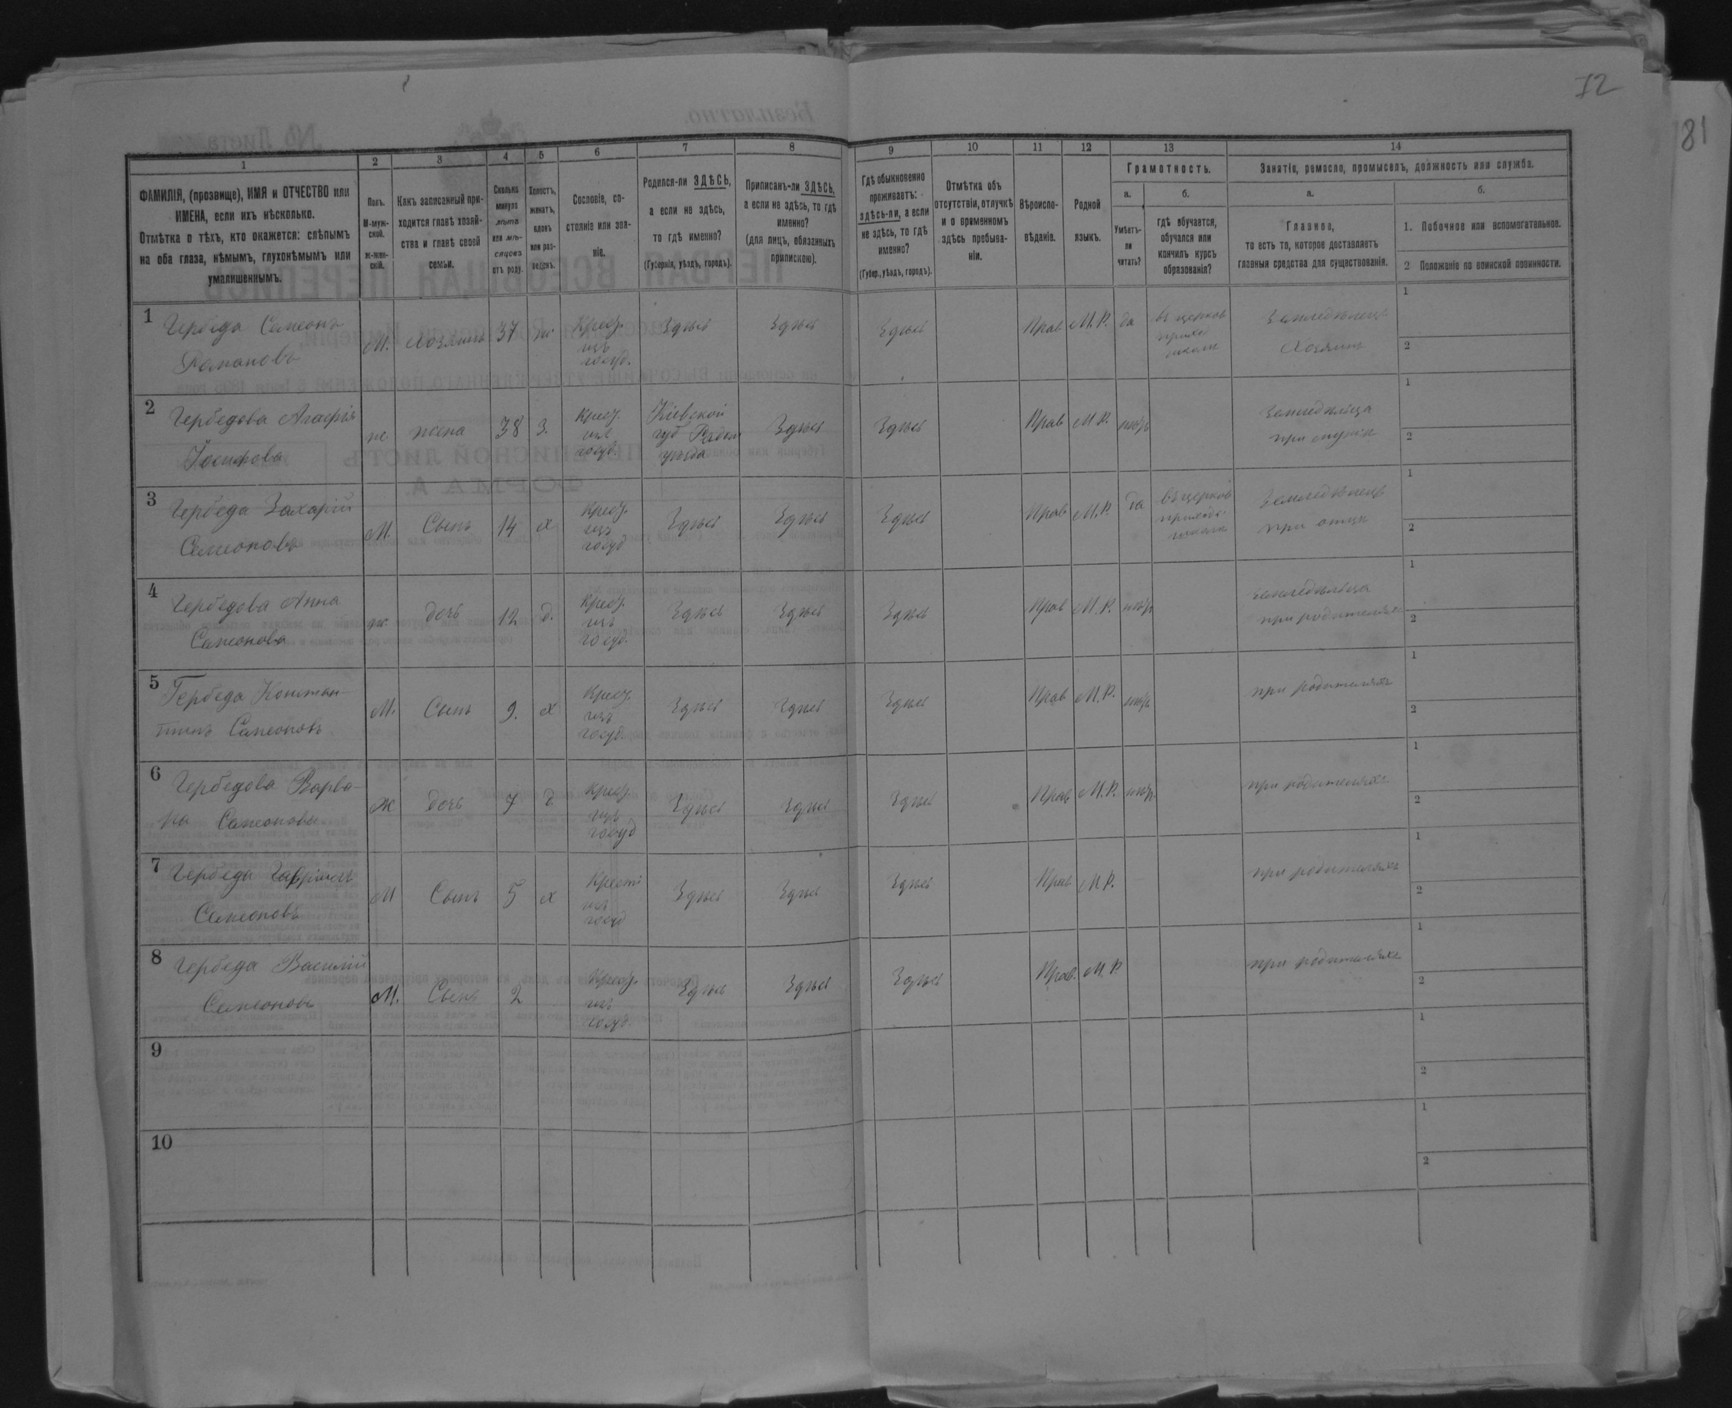 72
81
1
2
3
4
5
6
7
8
9
10
11
12
13
14
ФАМИЛІЯ, (прозвище), ИМЯ и ОТЧЕСТВО или
ИМЕНА, если ихъ нѣсколько.
Отмѣтка о тѣхъ, кто окажется: слѣпымъ
на оба глаза, нѣмымъ, глухонѣмымъ или
умалишеннымъ.
Полъ.
М-муж-
ской.
Ж-жен-
скій.
Какъ записанный при-
ходится главѣ хозяй-
ства и главѣ своей
семьи.
Сколько
минуло
лѣтъ
или мѣ-
сяцевъ
отъ роду.
Холостъ,
женатъ,
вдовъ
или раз-
веденъ.
Сословіе, со-
стояніе или зва-
ніе.
Родился-ли ЗДѢСЬ,
а если не здѣсь,
то гдѣ именно?
(Губернія, уѣздъ, городъ).
Приписанъ-ли ЗДѢСЬ,
а если не здѣсь, то гдѣ
именно?
(для лицъ, обязанныхъ
припискою).
Гдѣ обыкновенно
проживаетъ:
здѣсь-ли, а если
не здѣсь, то гдѣ
именно?
(Губер., уѣздъ, городъ).
Отмѣтка объ
отсутствіи, отлучкѣ
и о временномъ
здѣсь пребыва-
ніи.
Вѣроиспо-
вѣданіе.
Родной
языкъ.
Грамотность.
а.
Умѣетъ-
ли
читать?
б.
гдѣ обучается,
обучался или
кончилъ курсъ
образованія?
Занятіе, ремесло, промыселъ, должность или служба.
а.
Главное,
то есть то, которое доставляетъ
главныя средства для существованія.
б.
1. Побочное или вспомогательное.
2 Положеніе по воинской повинности.
1 Гербеда Симеонъ
Романовъ
М. Хозяинъ 37 ж.
Крест.
изъ
госуд.
Здѣсь Здѣсь Здѣсь
Прав М.Р. да
въ церков
приход
школѣ
Земледѣлецъ
Хозяинъ
1
2
2 Гербедова
Іосифова
ж жена 38 З.
Крест.
изъ
госуд.
Кіевской
губ
уѣзда
Здѣсь Здѣсь
Прав М.Р. нѣтъ
Земледѣлица
при
1
2
3 Гербеда Захарій
Симеоновъ
М. Сынъ 14 х
Крест.
изъ
госуд
Здѣсь Здѣсь Здѣсь
Прав М.Р. да
въ церков
приход.
школѣ
Земледѣлецъ
при отцѣ
1
2
4 Гербедова Анна
Симеонова
ж. дочь 12 д.
Крест.
изъ
госуд.
Здѣсь Здѣсь Здѣсь
Прав М.Р. нѣтъ
земледѣлица
при родителяхъ
1
2
5 Гербеда Констан-
тинъ Симеоновъ
М. Сынъ 9. х
Крест.
изъ
госуд.
Здѣсь Здѣсь Здѣсь
Прав М.Р. нѣтъ
при родителяхъ
1
2
6 Гербедова Варва-
ры Симеоновы
Ж дочь 7 д
Крест.
изъ
госуд
Здѣсь Здѣсь Здѣсь
Прав М.Р. нѣтъ
при родителяхъ
1
2
7 Гербеда
Симеоновъ
М Сынъ 5 х
Крест
изъ
госуд
Здѣсь Здѣсь Здѣсь
Прав М.Р.
при родителяхъ
1
2
8 Гербеда Василій
Симеоновъ
М. Сынъ 2
Крест.
изъ
госуд.
Здѣсь Здѣсь Здѣсь
Прав. М.Р
при родителяхъ
1
2
9
1
2
10
1
2